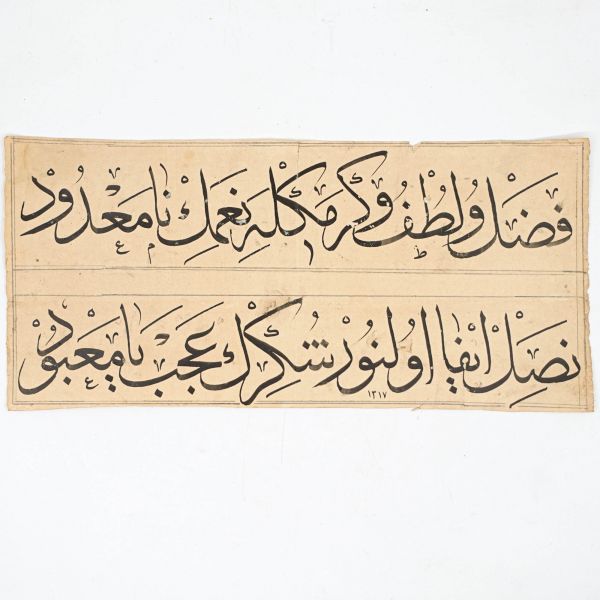 فضل و لطف و كرمكله نعمك نا معدود
نصل ايفا اولنور شكرك عجب يا معبود
١٣١٧